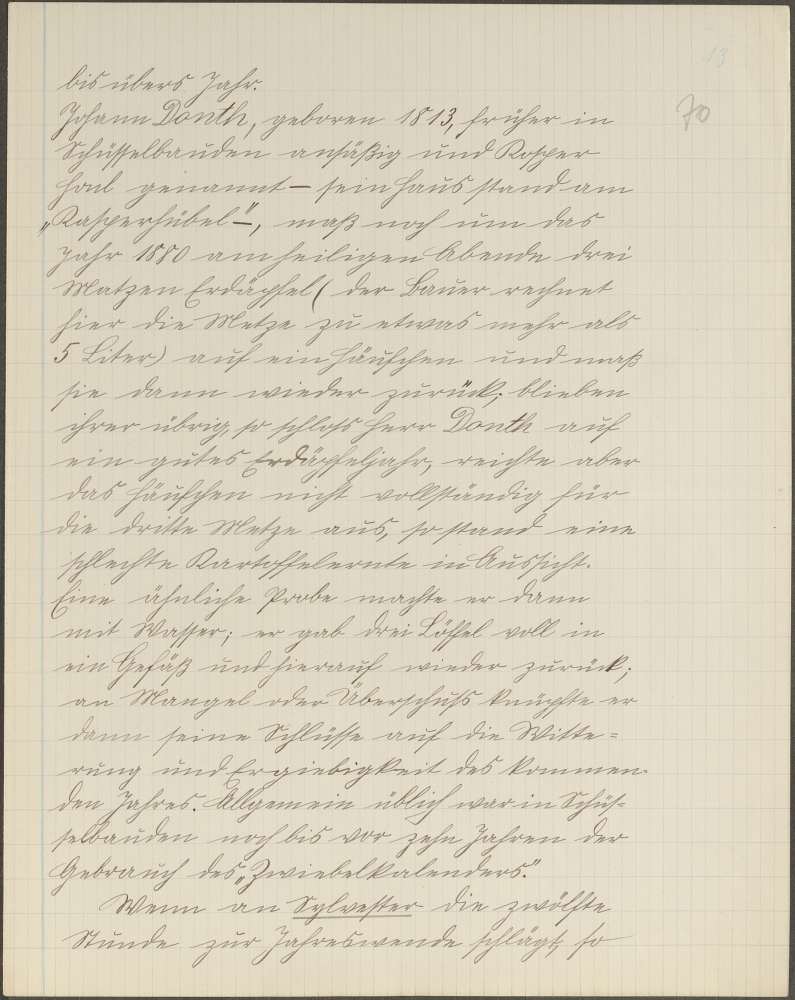 13
70
bis übers Jahr.
Johann Donth, geboren 1813, früher in
Schüsselbauden ansäßig und Kosper
honl genannt – sein Haus stand am
„Kasperhübel" –, maß noch um das
Jahr 1880 am heiligen Abende drei
Matzen Erdäpfel (der Bauer rechnet
hier die Metze zu etwas mehr als
5 Liter) auf ein Häufchen und maß
sie dann wieder zurück; blieben
ihrer übrig, so schloss Herr Donth auf
ein gutes Erdäpfeljahr, reichte aber
das Häufchen nicht vollständig für
die dritte Metze aus, so stand eine
schlechte Kartoffelernte in Aussicht.
Eine ähnliche Probe machte er dann
mit Wasser; er gab drei Löffel voll in
ein Gefäß und hierauf wieder zurück;
an Mangel oder Überschuss knüpfte er
dann seine Schlüsse auf die Witte=
rung und Ergiebigkeit des kommen-
den Jahres. Allgemein üblich war in Schüs=
selbauden noch bis vor zehn Jahren der
Gebrauch des „Zwiebelkalenders."
Wenn an Sylvester die zwölfte
Stunde zur Jahreswende schlägt, so